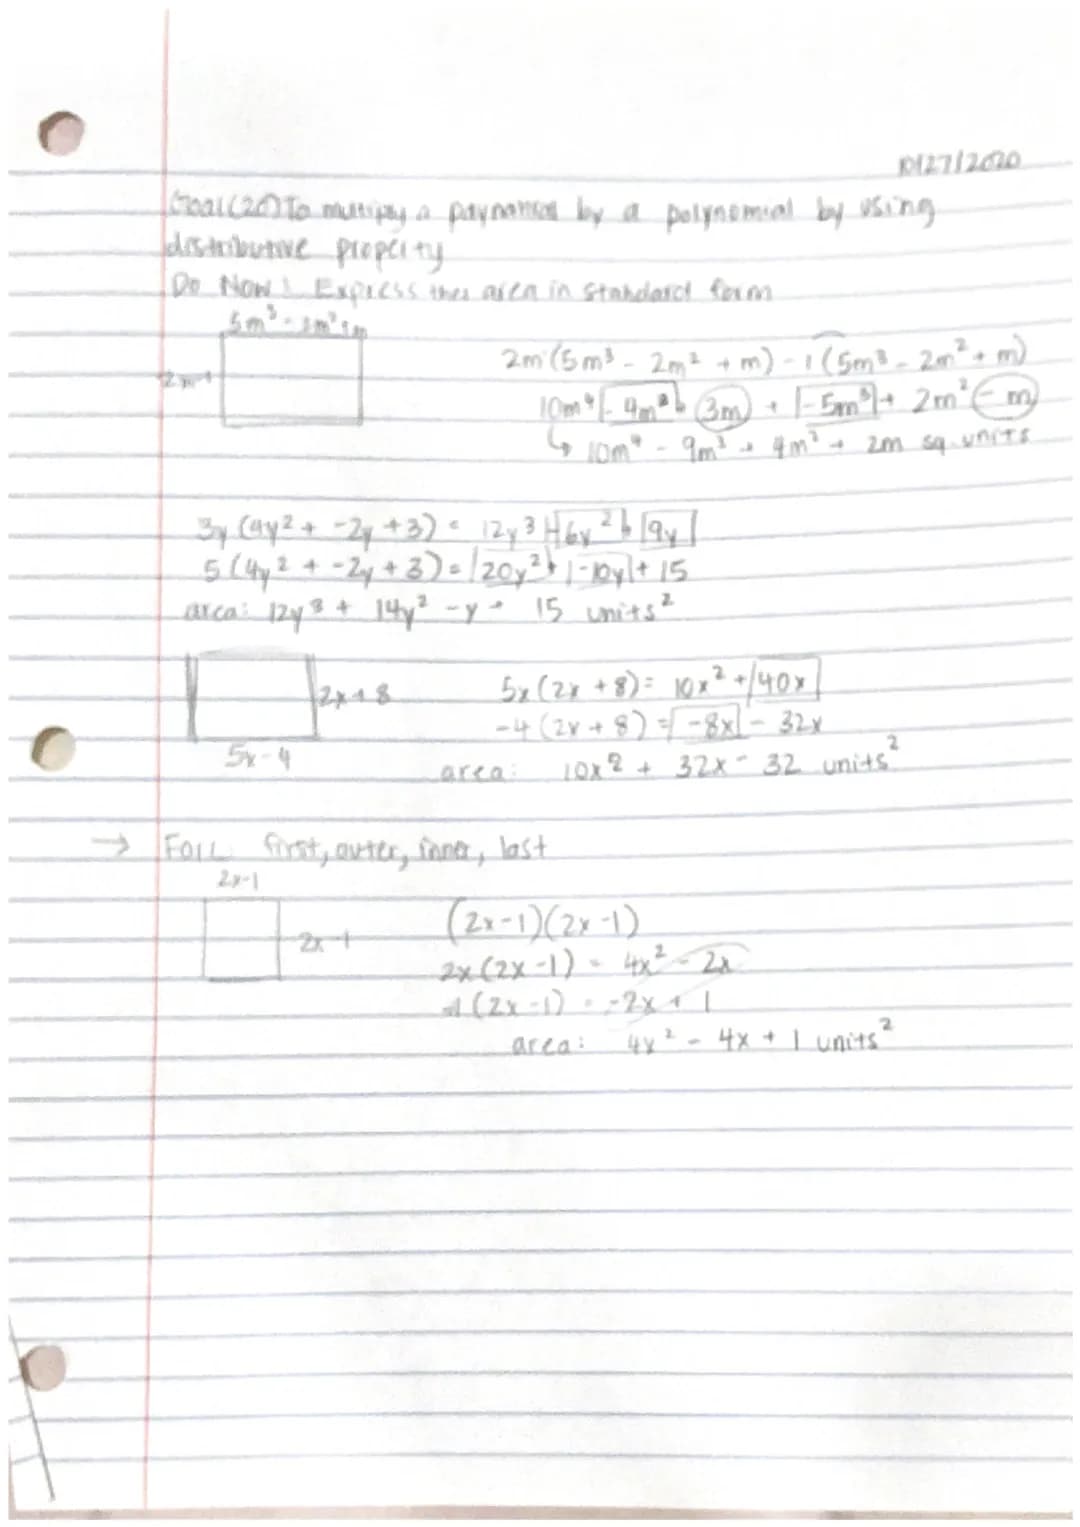 10/27/2020
Goal (20) To multiply a paynomial by a polynomial by using
distributive property
Do Now: Express the area in standard form
5m³ - 2m² + m
2m-1
2m(5m³ - 2m² + m) - 1(5m³ - 2m² + m)
10m⁴ - 4m³ + 3m + -5m³ + 2m² - m
↳ 10m⁴ - 9m³ + 4m² + 2m sq. units
3y (4y² + -2y +3) = 12y³ + -6y² + 9y
5 (4y² + -2y +3) = 20y² + -10y + 15
area: 12y³ + 14y² - y + 15 units²
2x+8
5x(2x +8) = 10x² + 40x
-4(2x + 8) = -8x - 32x
5x-4
area: 10x² + 32x - 32 units²
→ FOIL first, outer, inner, last
2x-1
2x-1
(2x-1)(2x-1)
2x(2x-1) = 4x² - 2x
-1(2x-1) = -2x + 1
area: 4x² - 4x + 1 units²